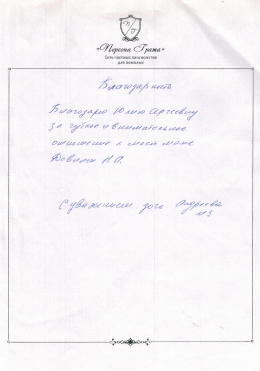 «Персона Грата»
Сеть частных пансионатов
для пожилых
Благодарность
Благодарю Юлию Сергеевну
за чуткое и внимательное
отношение к моей маме
Н.А.
С уважением дочь Андреева